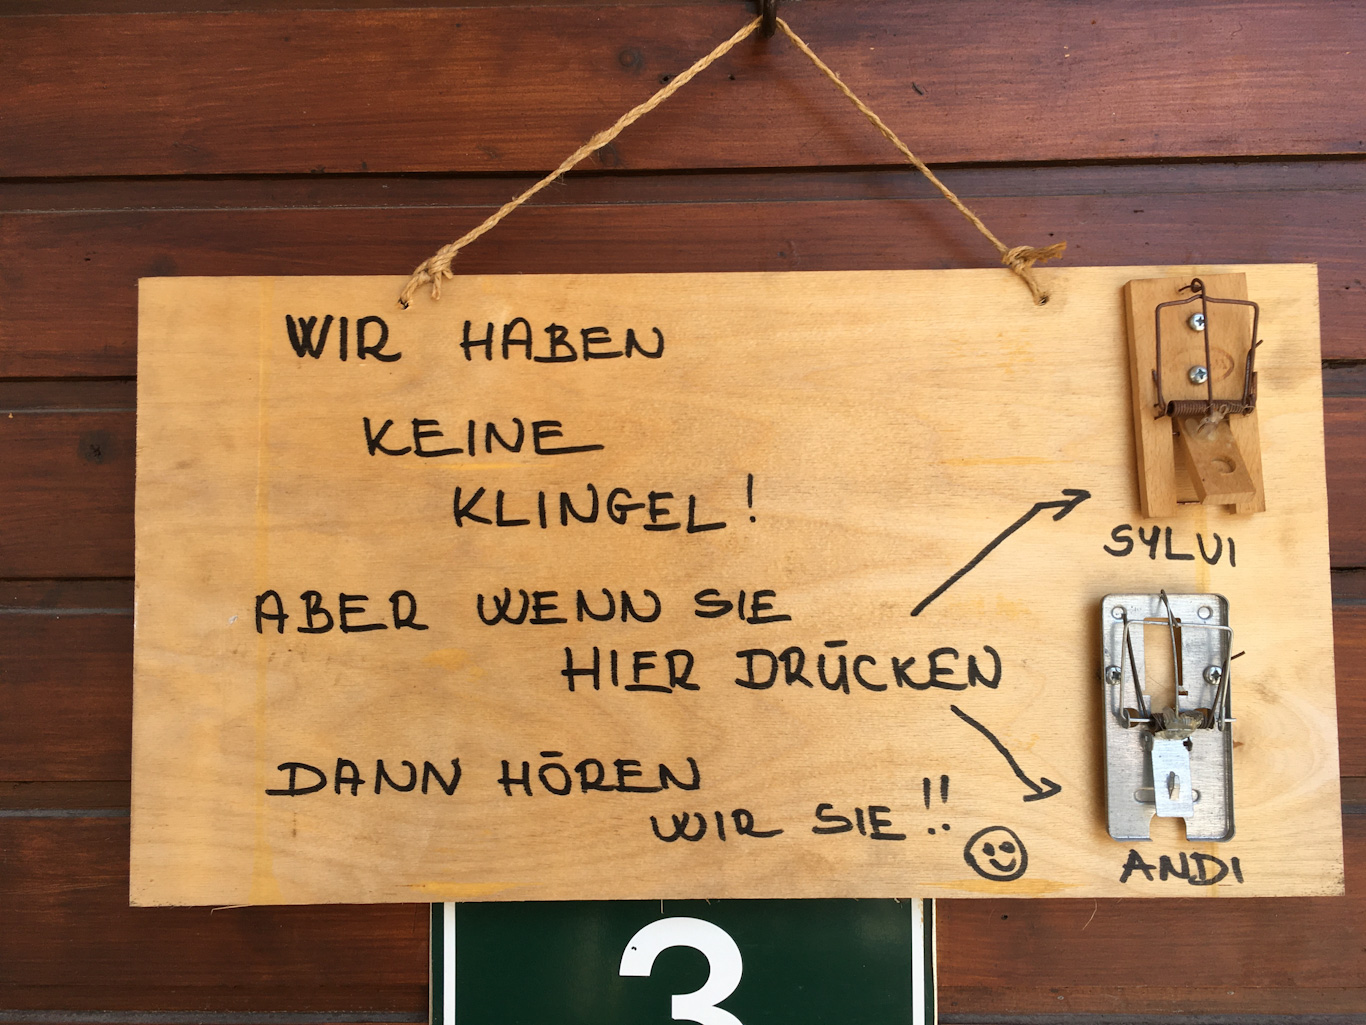 WIR HABEN
KEINE
KLINGEL!
ABER WENN SIE
HIER DRÜCKEN
DANN HÖREN
WIR SIE!!
SYLVI
ANDI
3